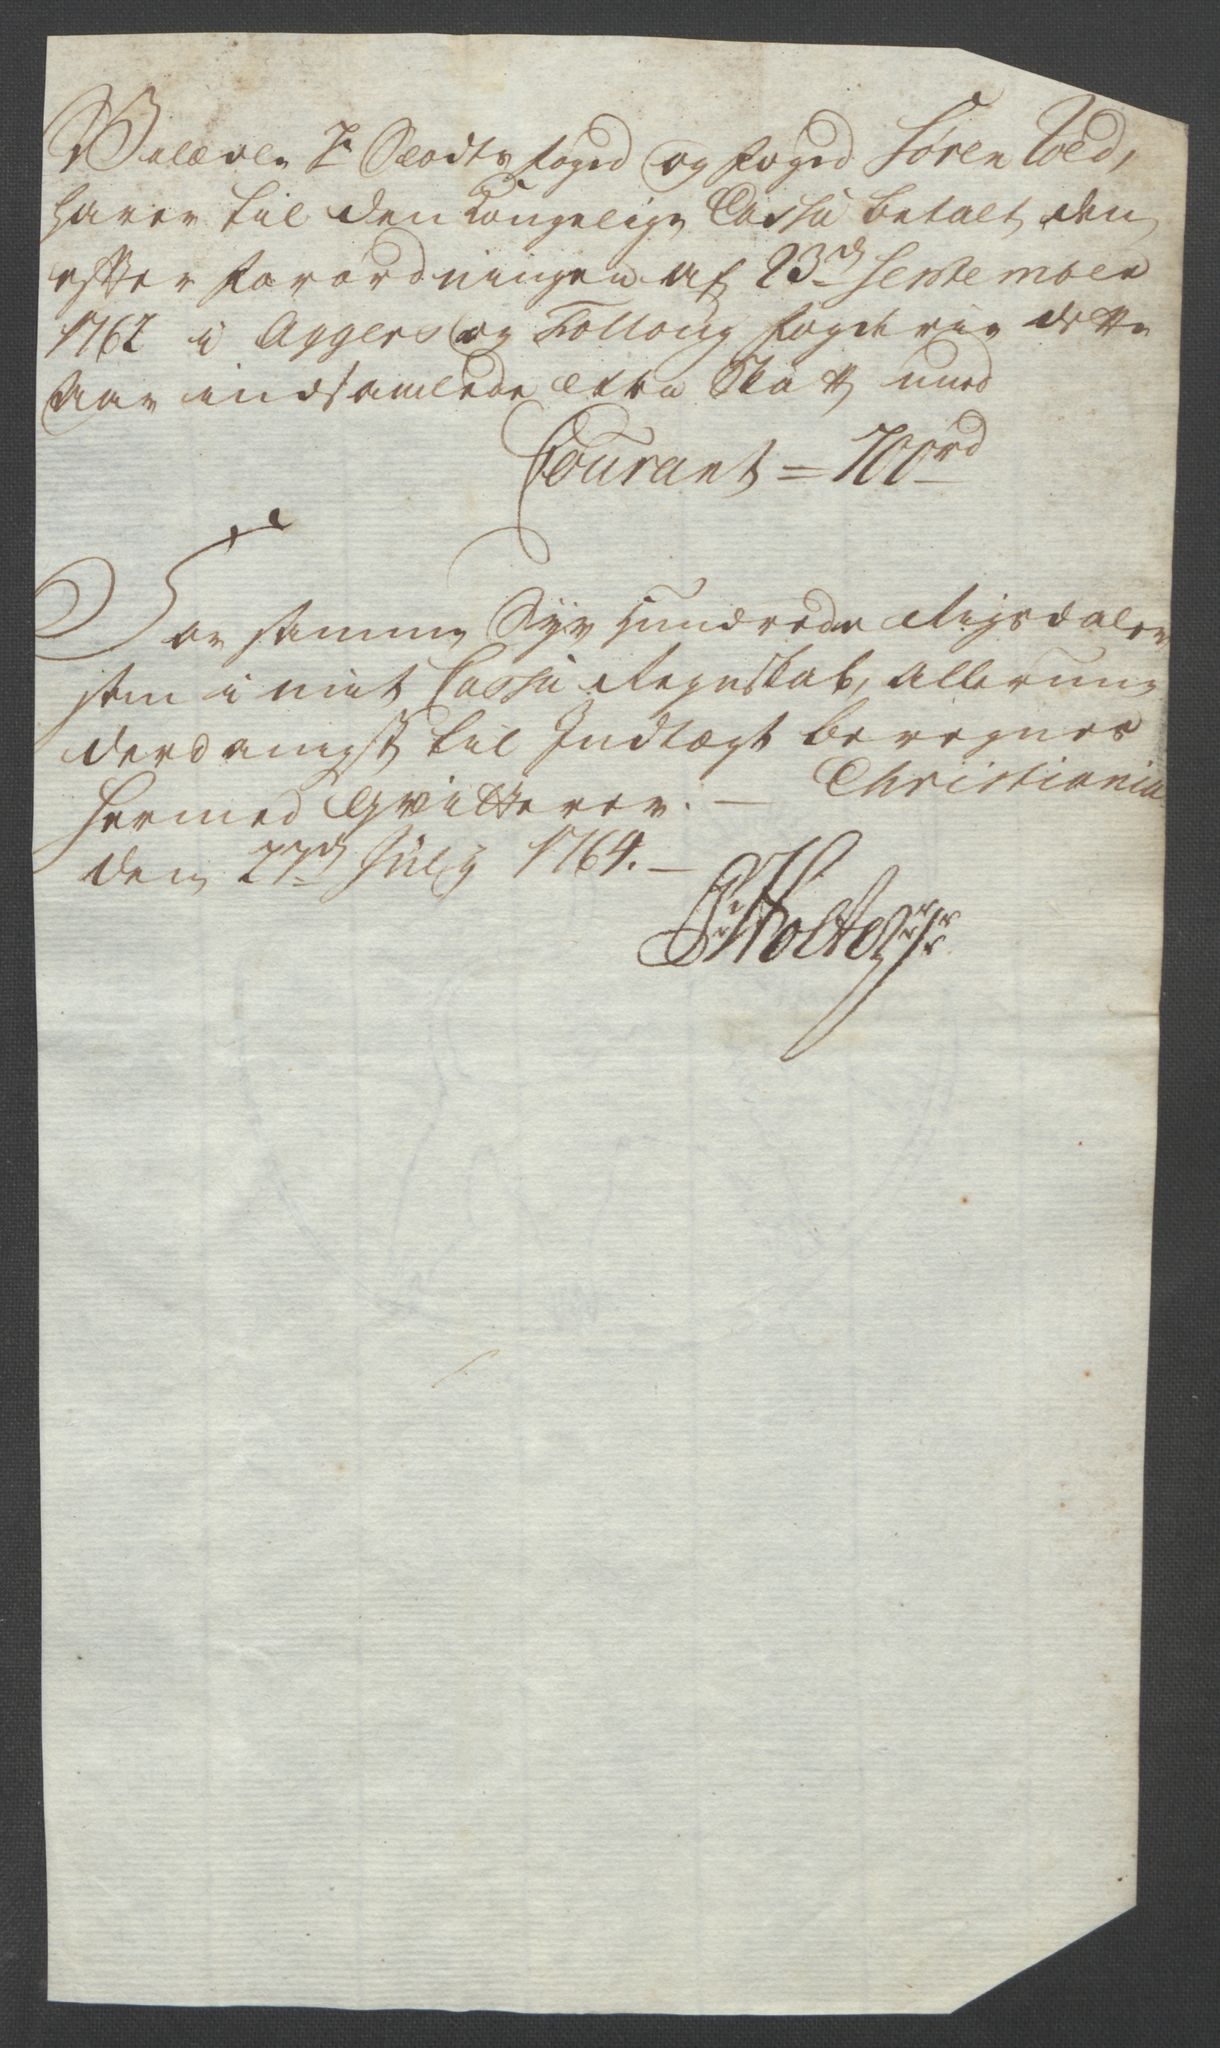 Velædle Hr Slodts foged og foged Søren Wed,
haver til den Kongelige Cassa betalt den
efter forordningen af 23de September
1762 i Aggers og Folloug fogderie dette
aar indsamlede Extra Skatt med
Courant = 700 rd
For samme Syv Hundrede Rigsdaler
som i mit Cassa Regnskab, allerun-
derdanigst til Indtægt beregnes
hermed Qvitterer. — Christiania
den 27de July 1764. —
Holte